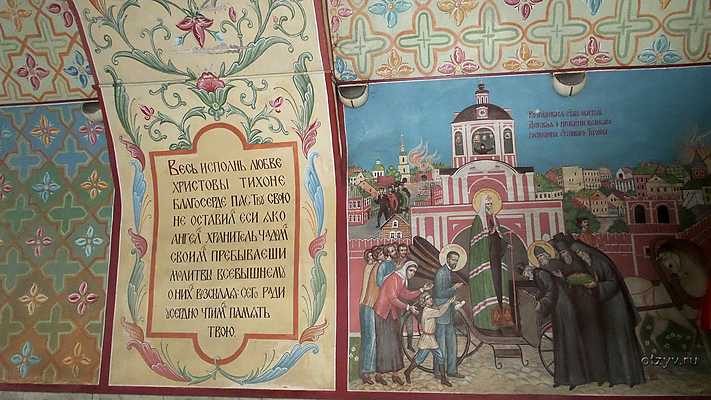 Весь исполнь любве
христовы тихоне
благосерде паствы свою
не оставил еси яко
ангел хранитель чадом
своим пребываеши
молитвы всевышнему
о них возсылая сего ради
усердно чтим память
твою.
Донская
otzyv.ru